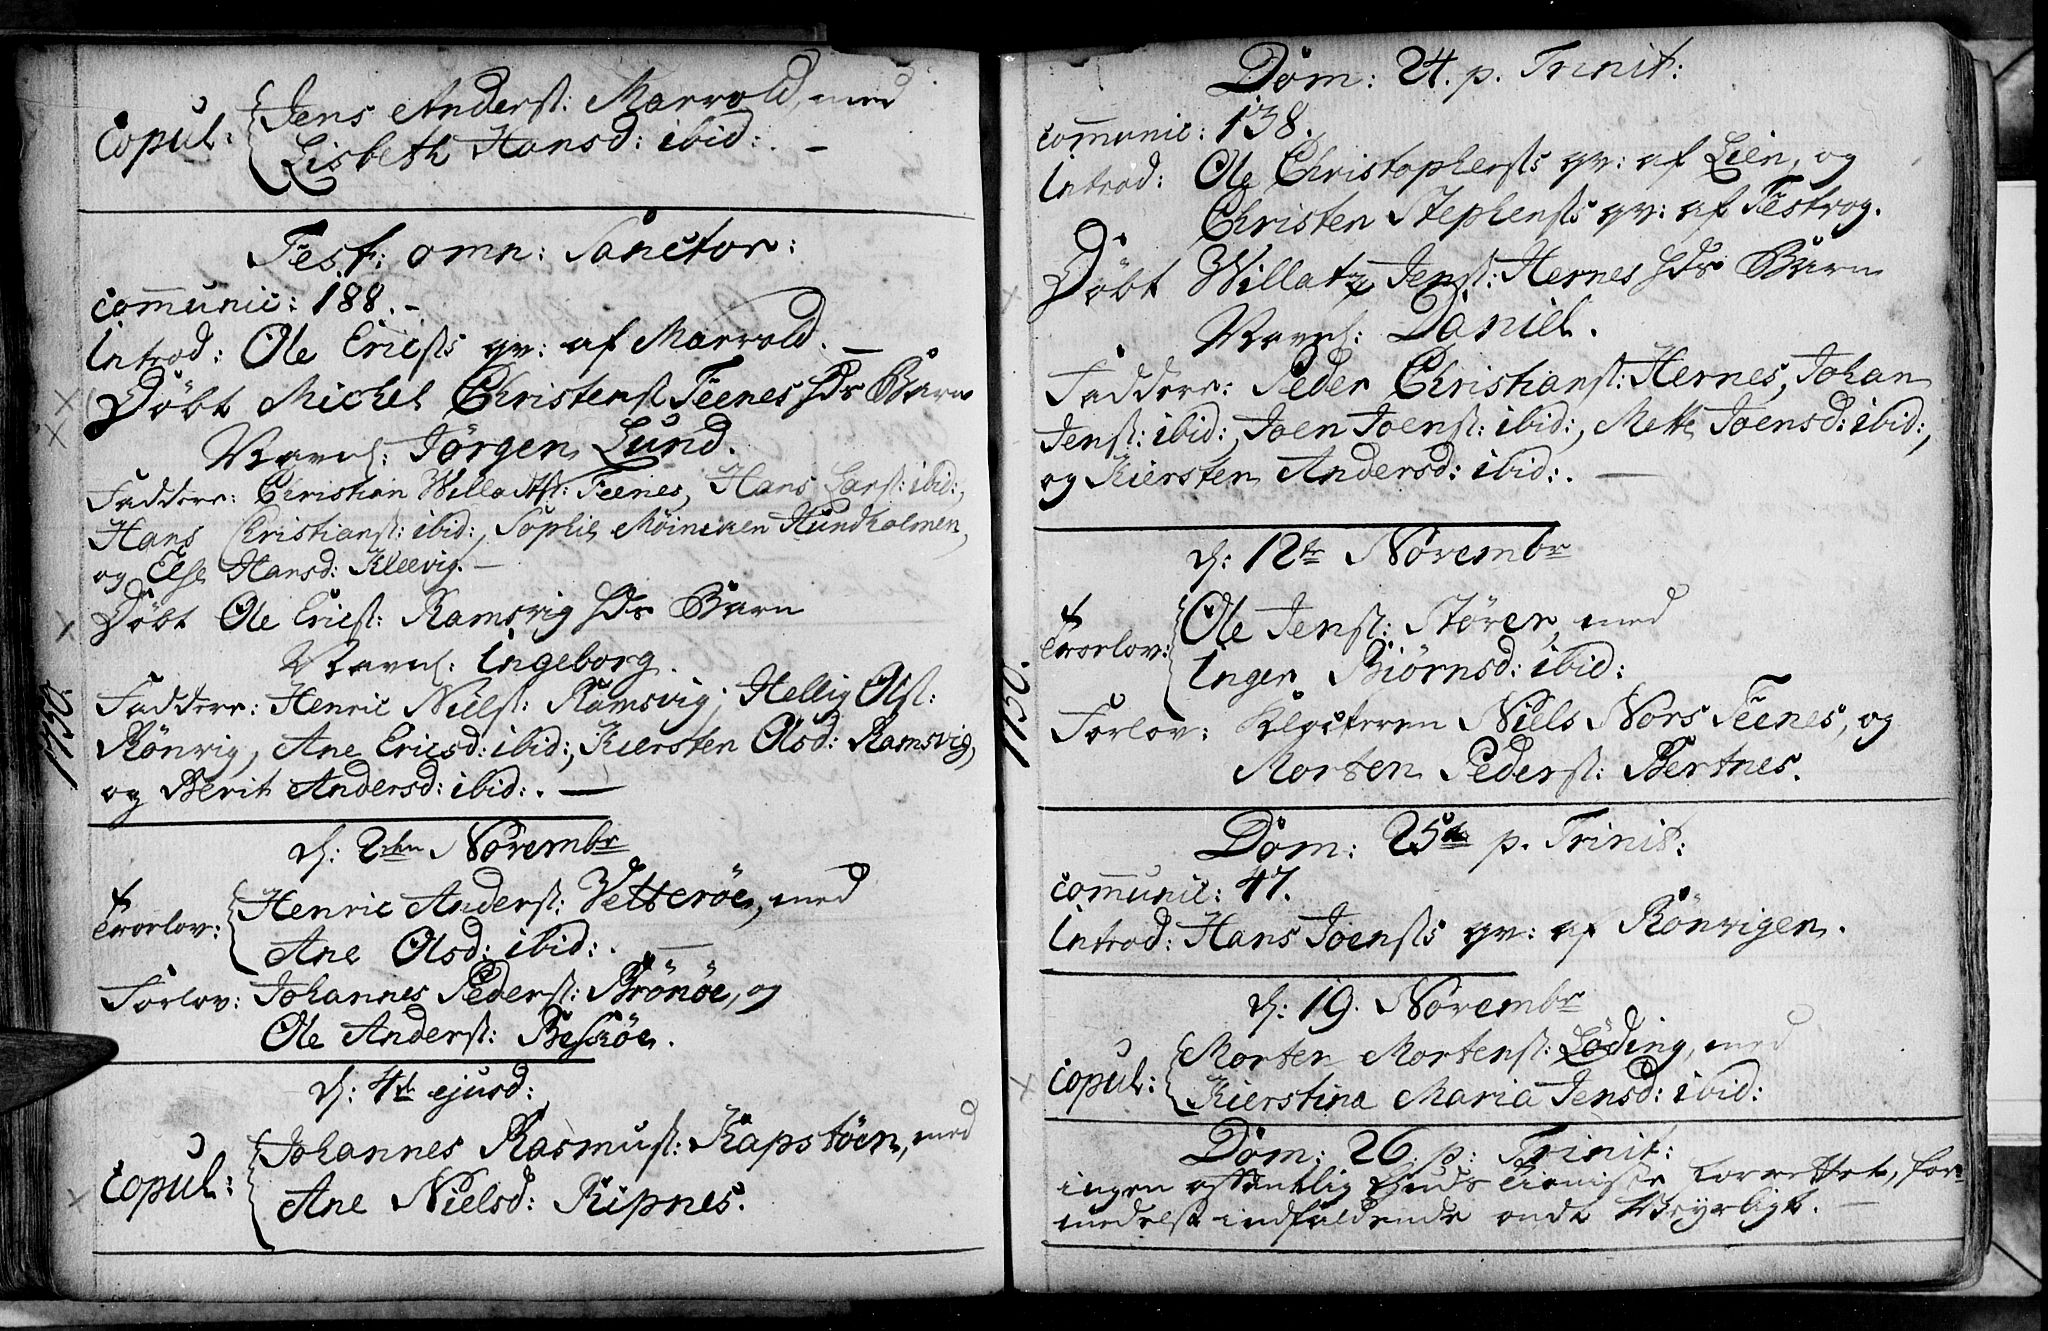 Copul: Jens Anders: Marvold, med
Lisbeth Hansd: ibid: . –
Fest: omn: Sanctor:
communic: 188. –
Introd: Ole Ericss qv: af Marvold. –
Döbt Michel Christens: Feenes hds Barn
Navnl: Jörgen Lund.
Faddere: Christian Willadts: Feenes, Hans Lars: ibid:,
Hans Christians: ibid:, Sophie Möiniken Hundholmen,
og Else Hansd: Kleevig. –
Döbt Ole Erics: Ramsvig hds Barn
Navnl: Ingeborg.
Faddere: Henric Niels: Ramsvig, Hellig Ols:
Rönvig, Ane Ericsd: ibid:, Kiersten Olsd: Ramsvig,
og Berit Andersd: ibid: . –
1750.
d: 2den Novembr
Trorlov: Henric Anders: Vetteröe, med
Ane Olsd: ibid: . –
Forlov: Johannes Peders: Brönöe, og
Ole Anders: Besköe.
d: 4de ejusd:
Copul: Johannes Rasmus: Kapstöen, med
Ane Nielsd: Ripnes.
Dom: 24. p. Trinit:
communic: 138.
Introd: Ole Christophers qv: af Lien, og
Christen Stephenss qv: af Festvog.
Döbt Willatz Jens: Hernes hds Barn
Navnl: Daniel.
Faddere: Peder Christians: Hernes, Johan
Jens: ibid:, Joen Joens: ibid:, Mette Joensd: ibid:,
og Kiersten Andersd: ibid: . –
1750.
d: 12te Novembr
Trorlov: Ole Jens: Stören, med
Inger Biörnsd: ibid:
Forlov: Klockeren Niels Nors Feenes, og
Morten Peders: Bertnes.
Dom: 25de p. Trinit:
communic: 47.
Introd: Hans Joenss qv: af Rönvigen.
d: 19. Novembr
Copul: Morten Mortens: Löding, med
Kierstina Maria Jensd: ibid:
Dom: 26. p: Trinit:
ingen offentlig Guds Tieniste forrettet, for-
medelst indfaldende ondt Veyrligt. –